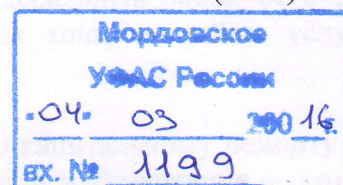 Мордовское
УФАС России
"04" 03 200 16г.
вх. № 1199